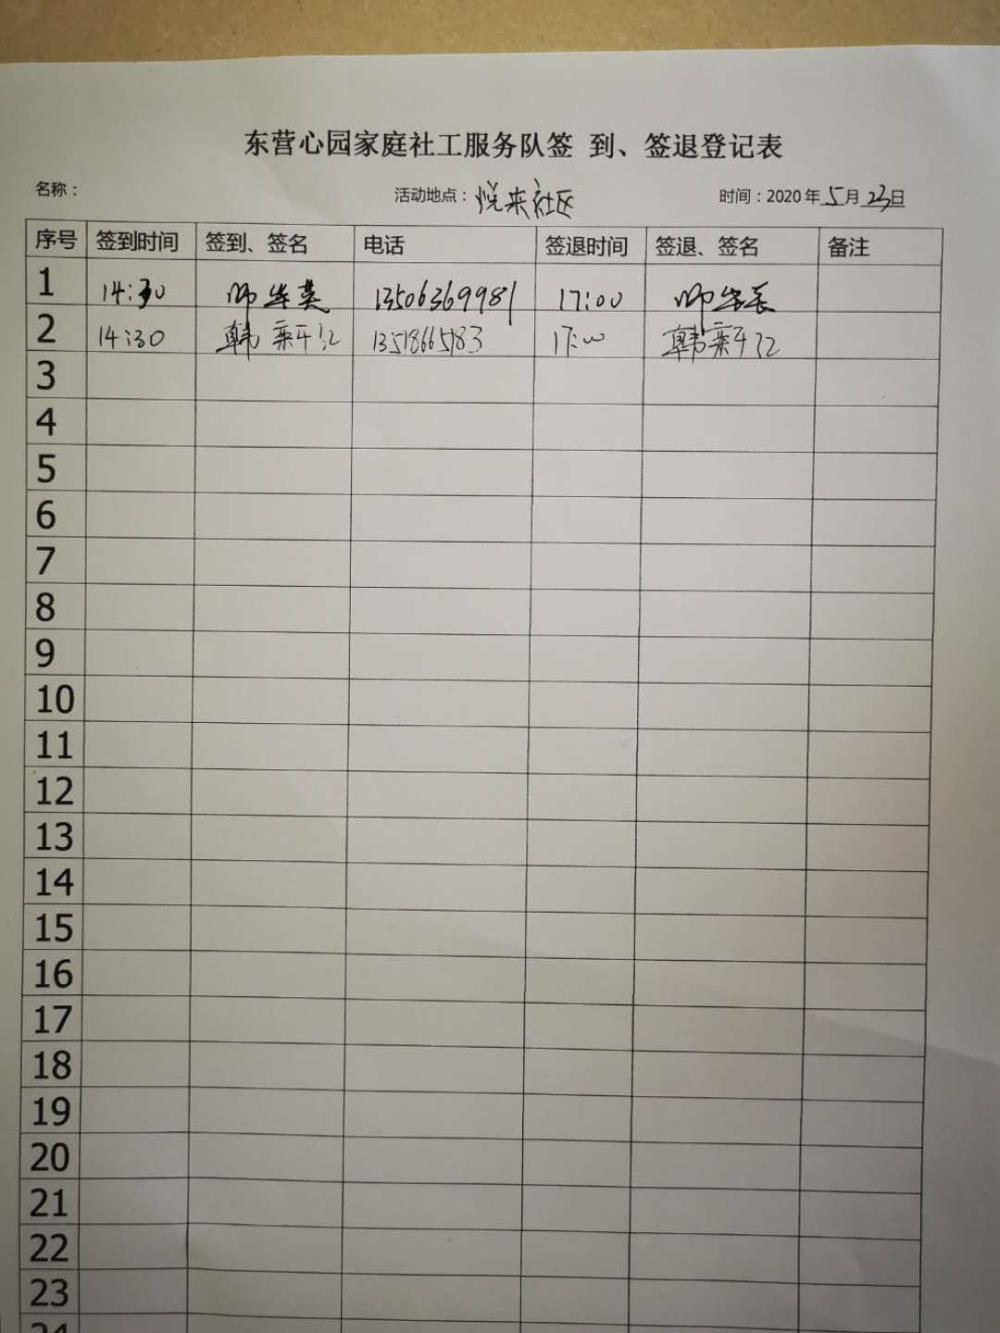 东营心园家庭社工服务队签 到、签退登记表
名称： 活动地点：悦来社区 时间：2020年5月23日
序号 签到时间 签到、签名 电话 签退时间 签退、签名 备注
1 14:30 师华英 13506369981 17:00 师华英
2 14:30 韩 13518665183 17:00 韩
3
4
5
6
7
8
9
10
11
12
13
14
15
16
17
18
19
20
21
22
23
24